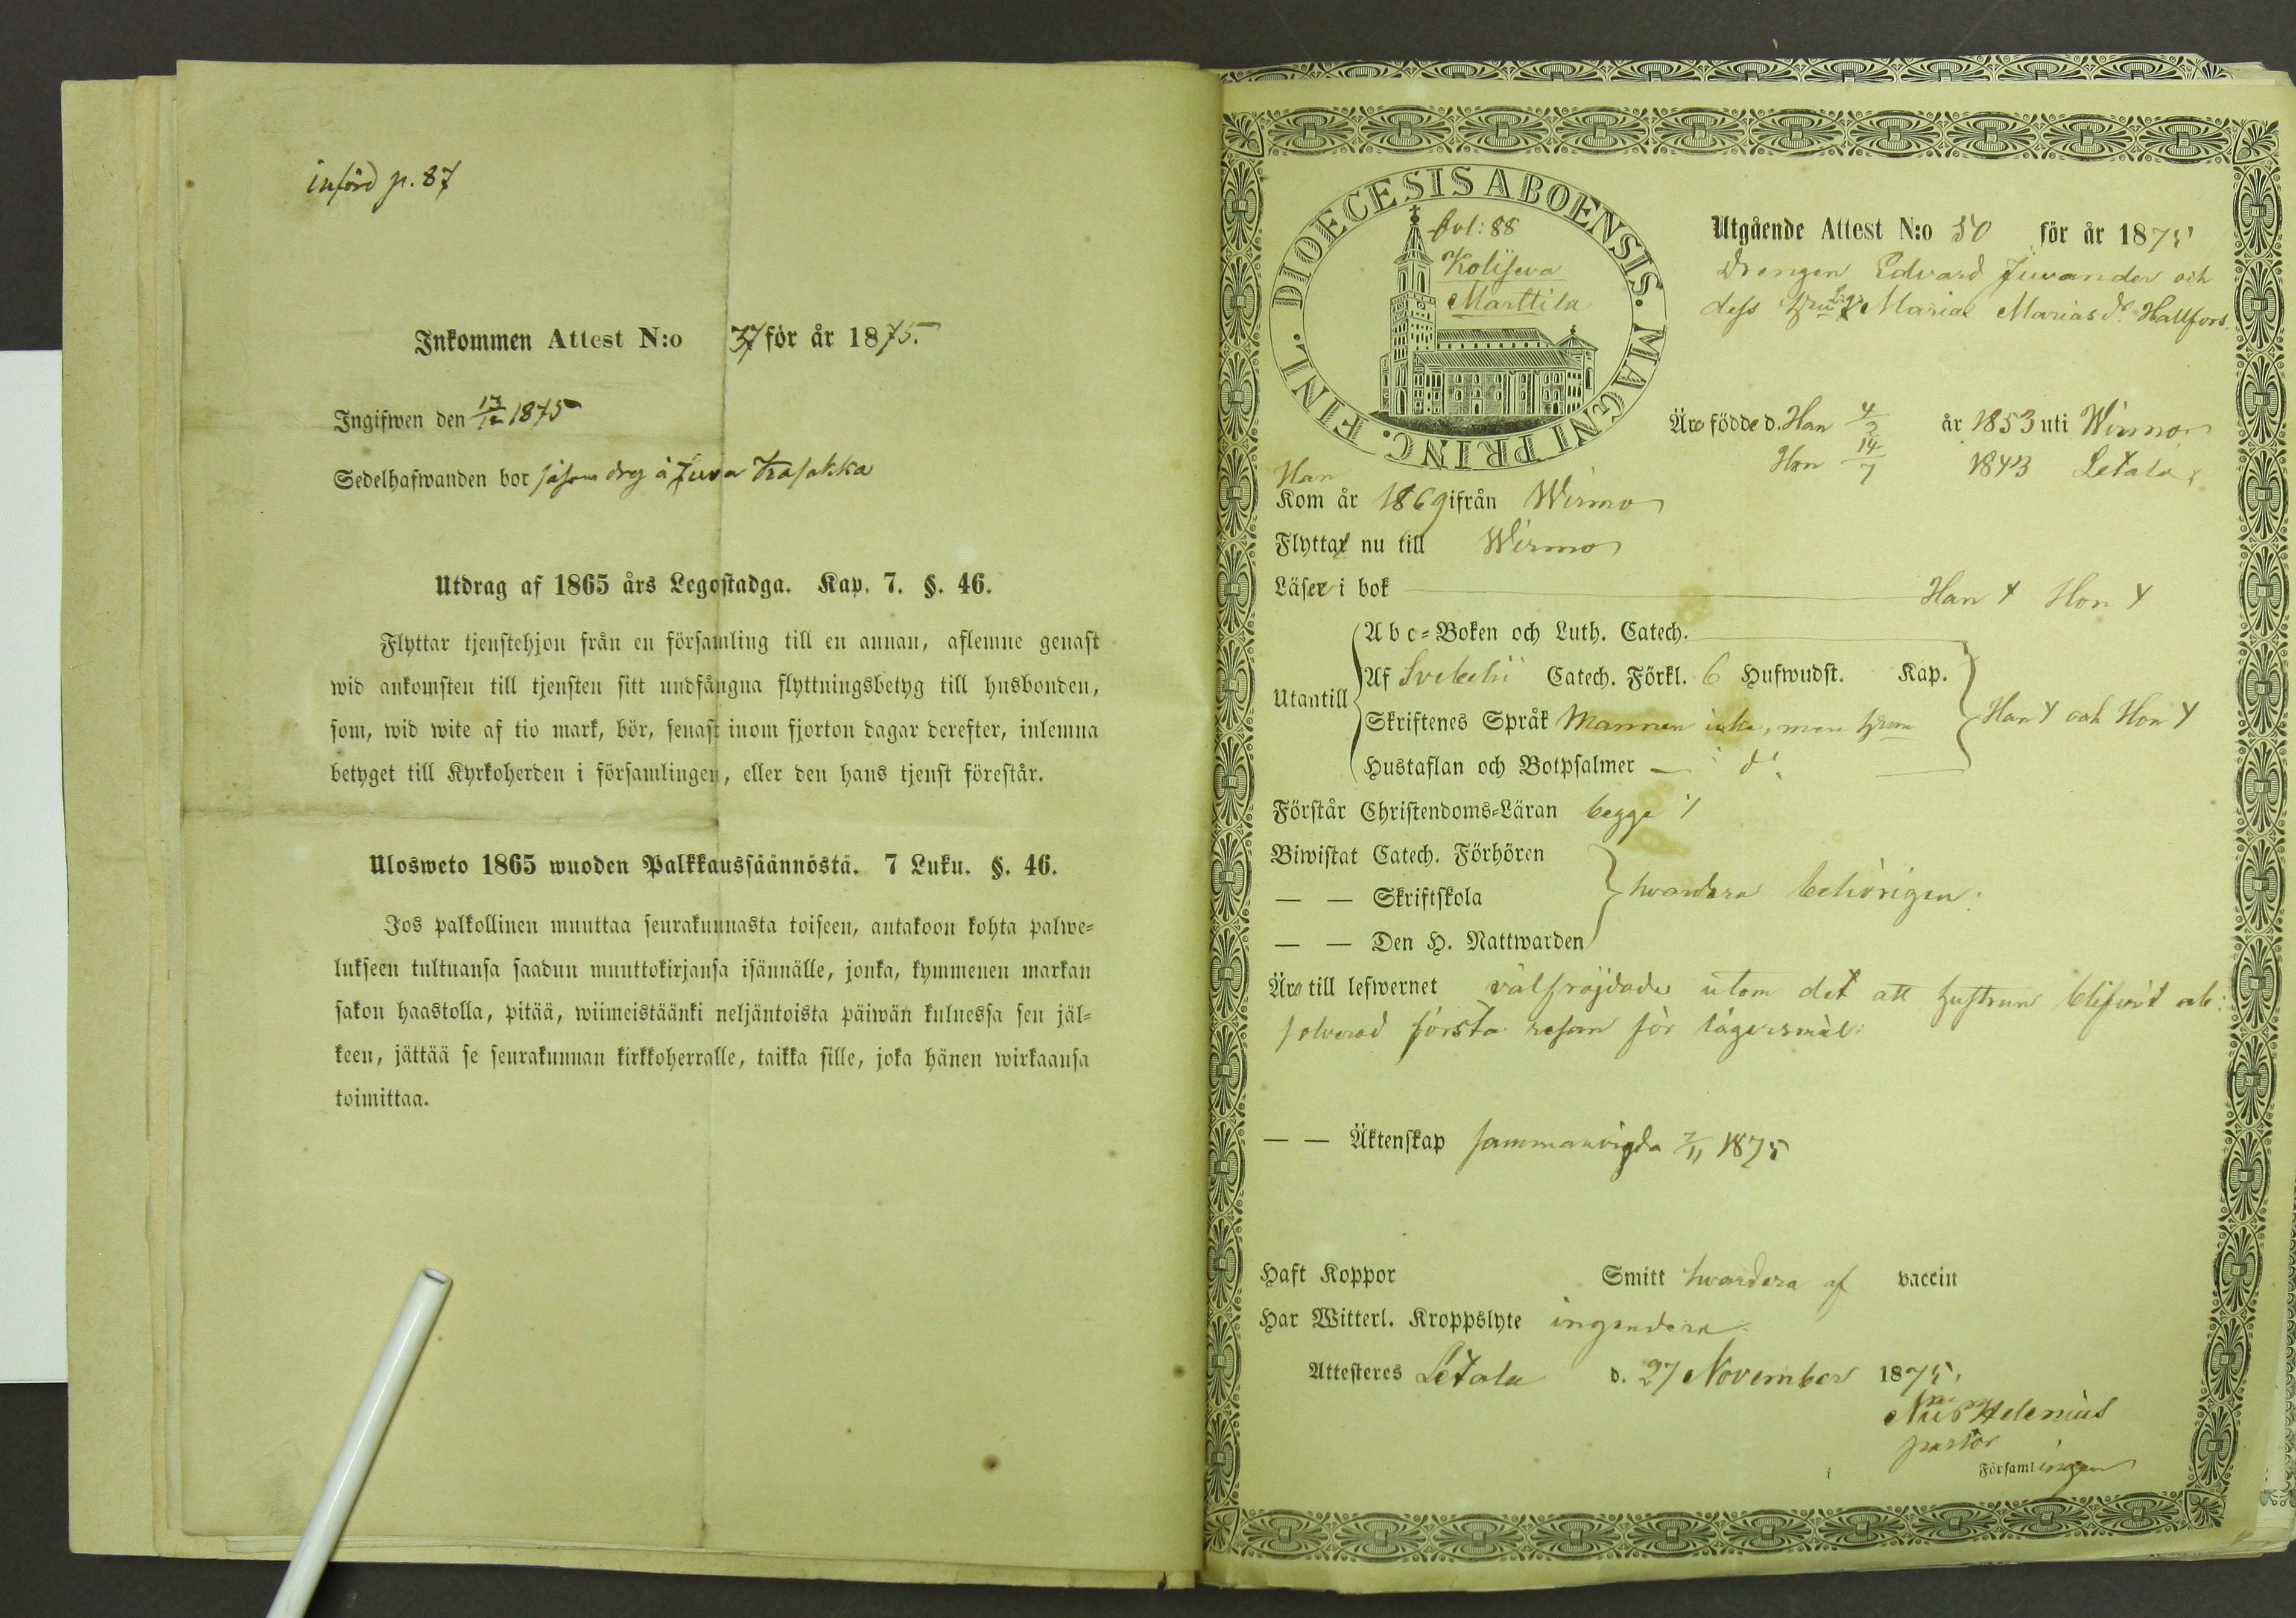 införd p. 87
Inkommen Attest N:o 37 för år 1875.
Ingifwen den 13/12 1875
Sedelhafwanden bor såsom drg å Juva
Utdrag af 1865 års Legostadga. Kap. 7. §. 46.
Flyttar tjenstehjon från en församling till en annan, aflemne genast
wid ankomsten till tjensten sitt undfångna flyttningsbetyg till husbonden,
som, wid wite af tio mark, bör, senast inom fjorton dagar derefter, inlemna
betyget till Kyrkoherden i församlingen, eller den hans tjenst förestår.
Ulosweto 1865 wuoden Palkkaussäännöstä. 7 Luku. §. 46.
Jos palkollinen muuttaa seurakunnasta toiseen, antakoon kohta palwe-
lukseen tultuansa saadun muuttokirjansa isännälle, jonka, kymmenen markan
sakon haastolla, pitää, wiimeistäänki neljäntoista päiwän kuluessa sen jäl-
keen, jättää se seurakunnan kirkkoherralle, taikka sille, joka hänen wirkaansa
toimittaa.
DIOECESIS ABOENSIS. MAGNI PRINC. FINL.
fol: 88
Koliseva
Marttila
Utgående Attest N:o 50 för år 1875
Drengen Edvard Juvander och
dess hustru Maria Mariasdr Hallfors.
Äro födde d. Han 4/3 år 1853 uti Wirmo
Hon 14/7 1843 Letala
Han
Kom år 1869 ifrån Wirmo
Flytta nu till Wirmo
Läser i bok Han X Hon X
Utantill
Abc-Boken och Luth. Catech.
Af Svebelii Catech. Förkl. 6 Hufwudst. Kap.
Skriftenes Språk Mannen icke, men
Hustaflan och Botpsalmer — d:
Han X och Hon X
Förstår Christendoms-Läran begge
Biwistat Catech. Förhören
— — Skriftskola hvardera behörigen.
— — Den H. Nattwarden
Äro till lefwernet välfräjdade utom det att hustrun blifvit ab:
solverad första resan för lägersmål:
— — Äktenskap sammanvigda 7/11 1875
Haft Koppor Smitt hvardera af vaccin
Har Witterl. Kroppslyte ingendera
Attesteras Letala d. 27 November 1875.
Helenius
pastor
i Församlingen